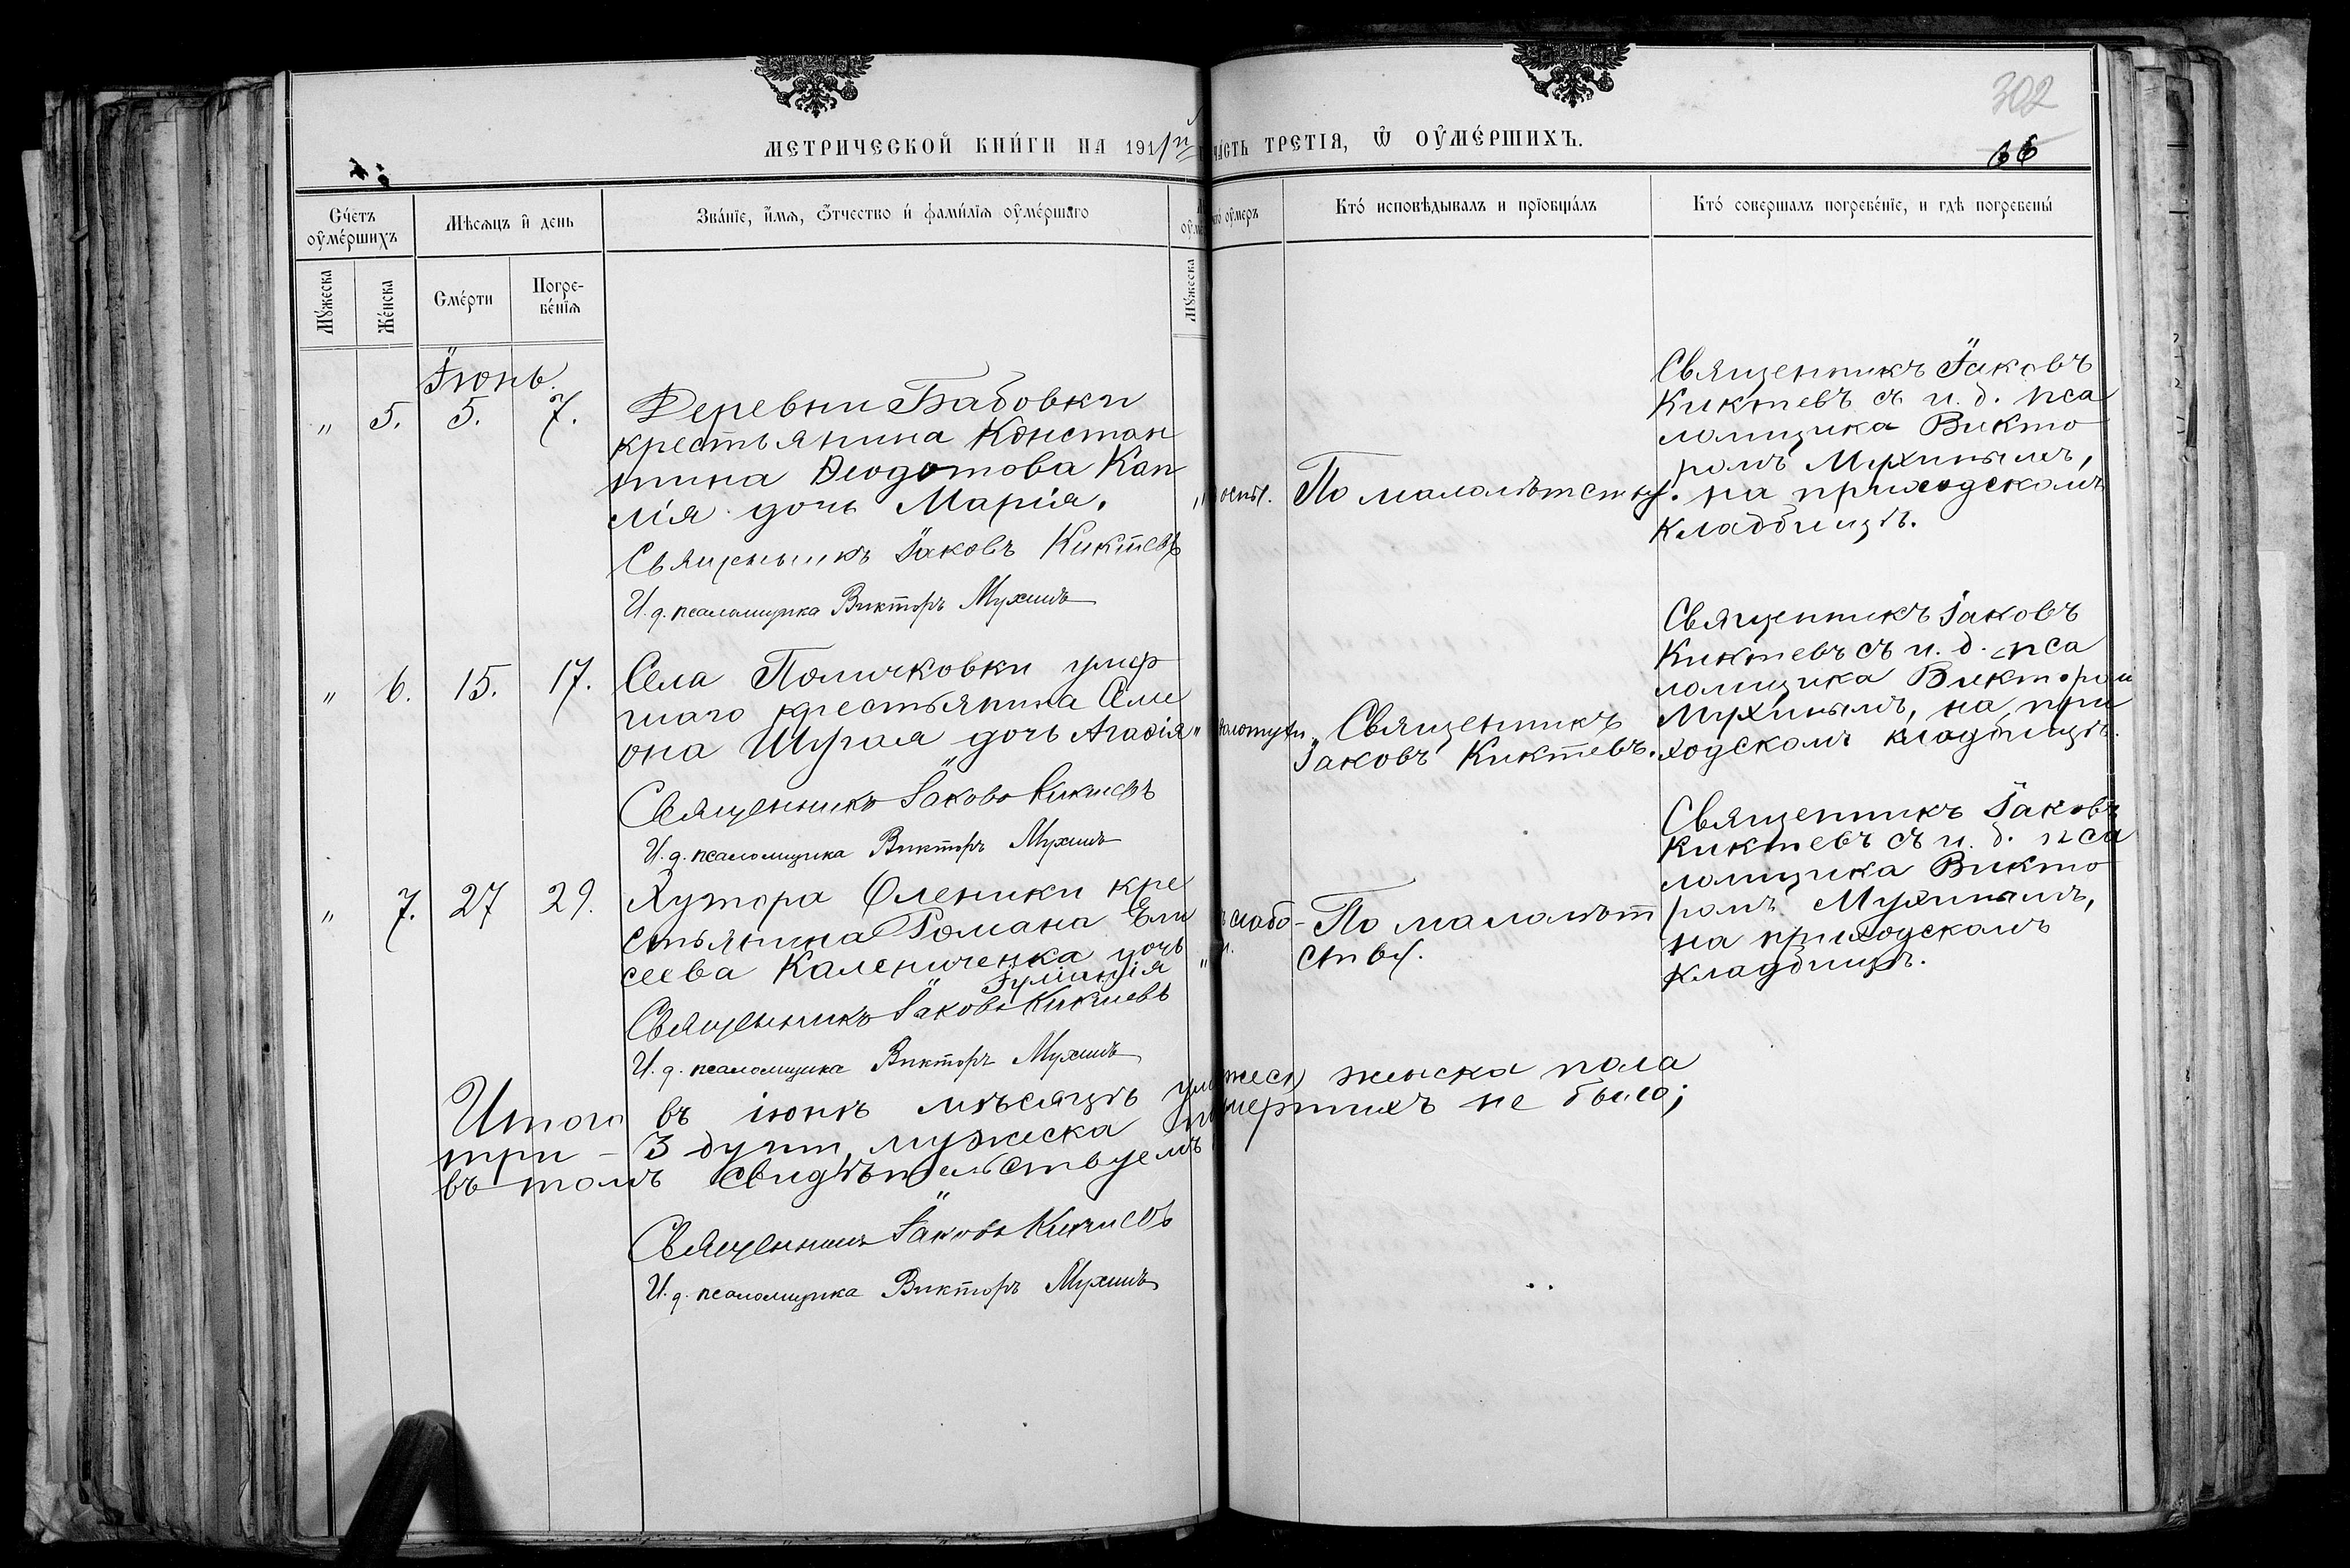 302
МЕТРИЧЕСКОЙ КНИ́ГИ НА 1911й
ЧА́СТЬ ТРЕТІЯ, Ѿ ОУ҆МЕ́РШИХЪ.
66
Сче́тъ оу҆ме́ршихъ
Мѣсяцъ и҆ день
Зва́нїе, и҆́мѧ, ѻ҆́тчество и҆ фамилїѧ оу҆ме́ршаго
оу҆меръ
Кто́ исповѣ́дывалъ и прїобща́лъ
Кто́ совершалъ погребе́нїе, и гдѣ погребены́
Му́жеска
Же́нска
Сме́рти
Погре-
бе́нїѧ
Му́жеска
Іюнь.
" 5. 5. 7.
Деревни Бабовки
крестьянина Констан
тина Ѳеодотова Кап
лія дочь Марія.
Священникъ Іаковъ Киктевъ
И. д. псаломщика Викторъ Мухинъ
" оспы.
По малолѣтству.
Священникъ Іаковъ
Киктевъ съ и. д. пса
ломщика Викто
ромъ Мухинымъ,
на приходскомъ
кладбищѣ.
" 6. 15. 17.
Села Поличковки умер
шаго крестьянина Симе
она Шугая дочь Агаѳія
Священникъ Іаковъ Киктевъ
И. д. псаломщика Викторъ Мухинъ
"
Священникъ
Іаковъ Киктевъ.
Священникъ Іаковъ
Киктевъ съ и. д. пса
ломщика Викторомъ
Мухинымъ, на при
ходскомъ кладбищѣ.
" 7. 27 29.
Хутора Оленики кре
стьянина Романа Ели
сеева Калениченка дочь
Іуліанія
Священникъ Іаковъ Киктевъ
И. д. псаломщика Викторъ Мухинъ
" слабо-
По малолѣт
ству.
Священникъ Іаковъ
Киктевъ съ и. д. пса
ломщика Викто
ромъ Мухинымъ,
на приходскомъ
кладбищѣ.
Итого въ іюнѣ мѣсяцѣ женска пола
три - 3 душ, мужеска умершихъ не было;
въ томъ свидѣтельствуемъ
Священникъ Іаковъ Киктевъ
И. д. псаломщика Викторъ Мухинъ